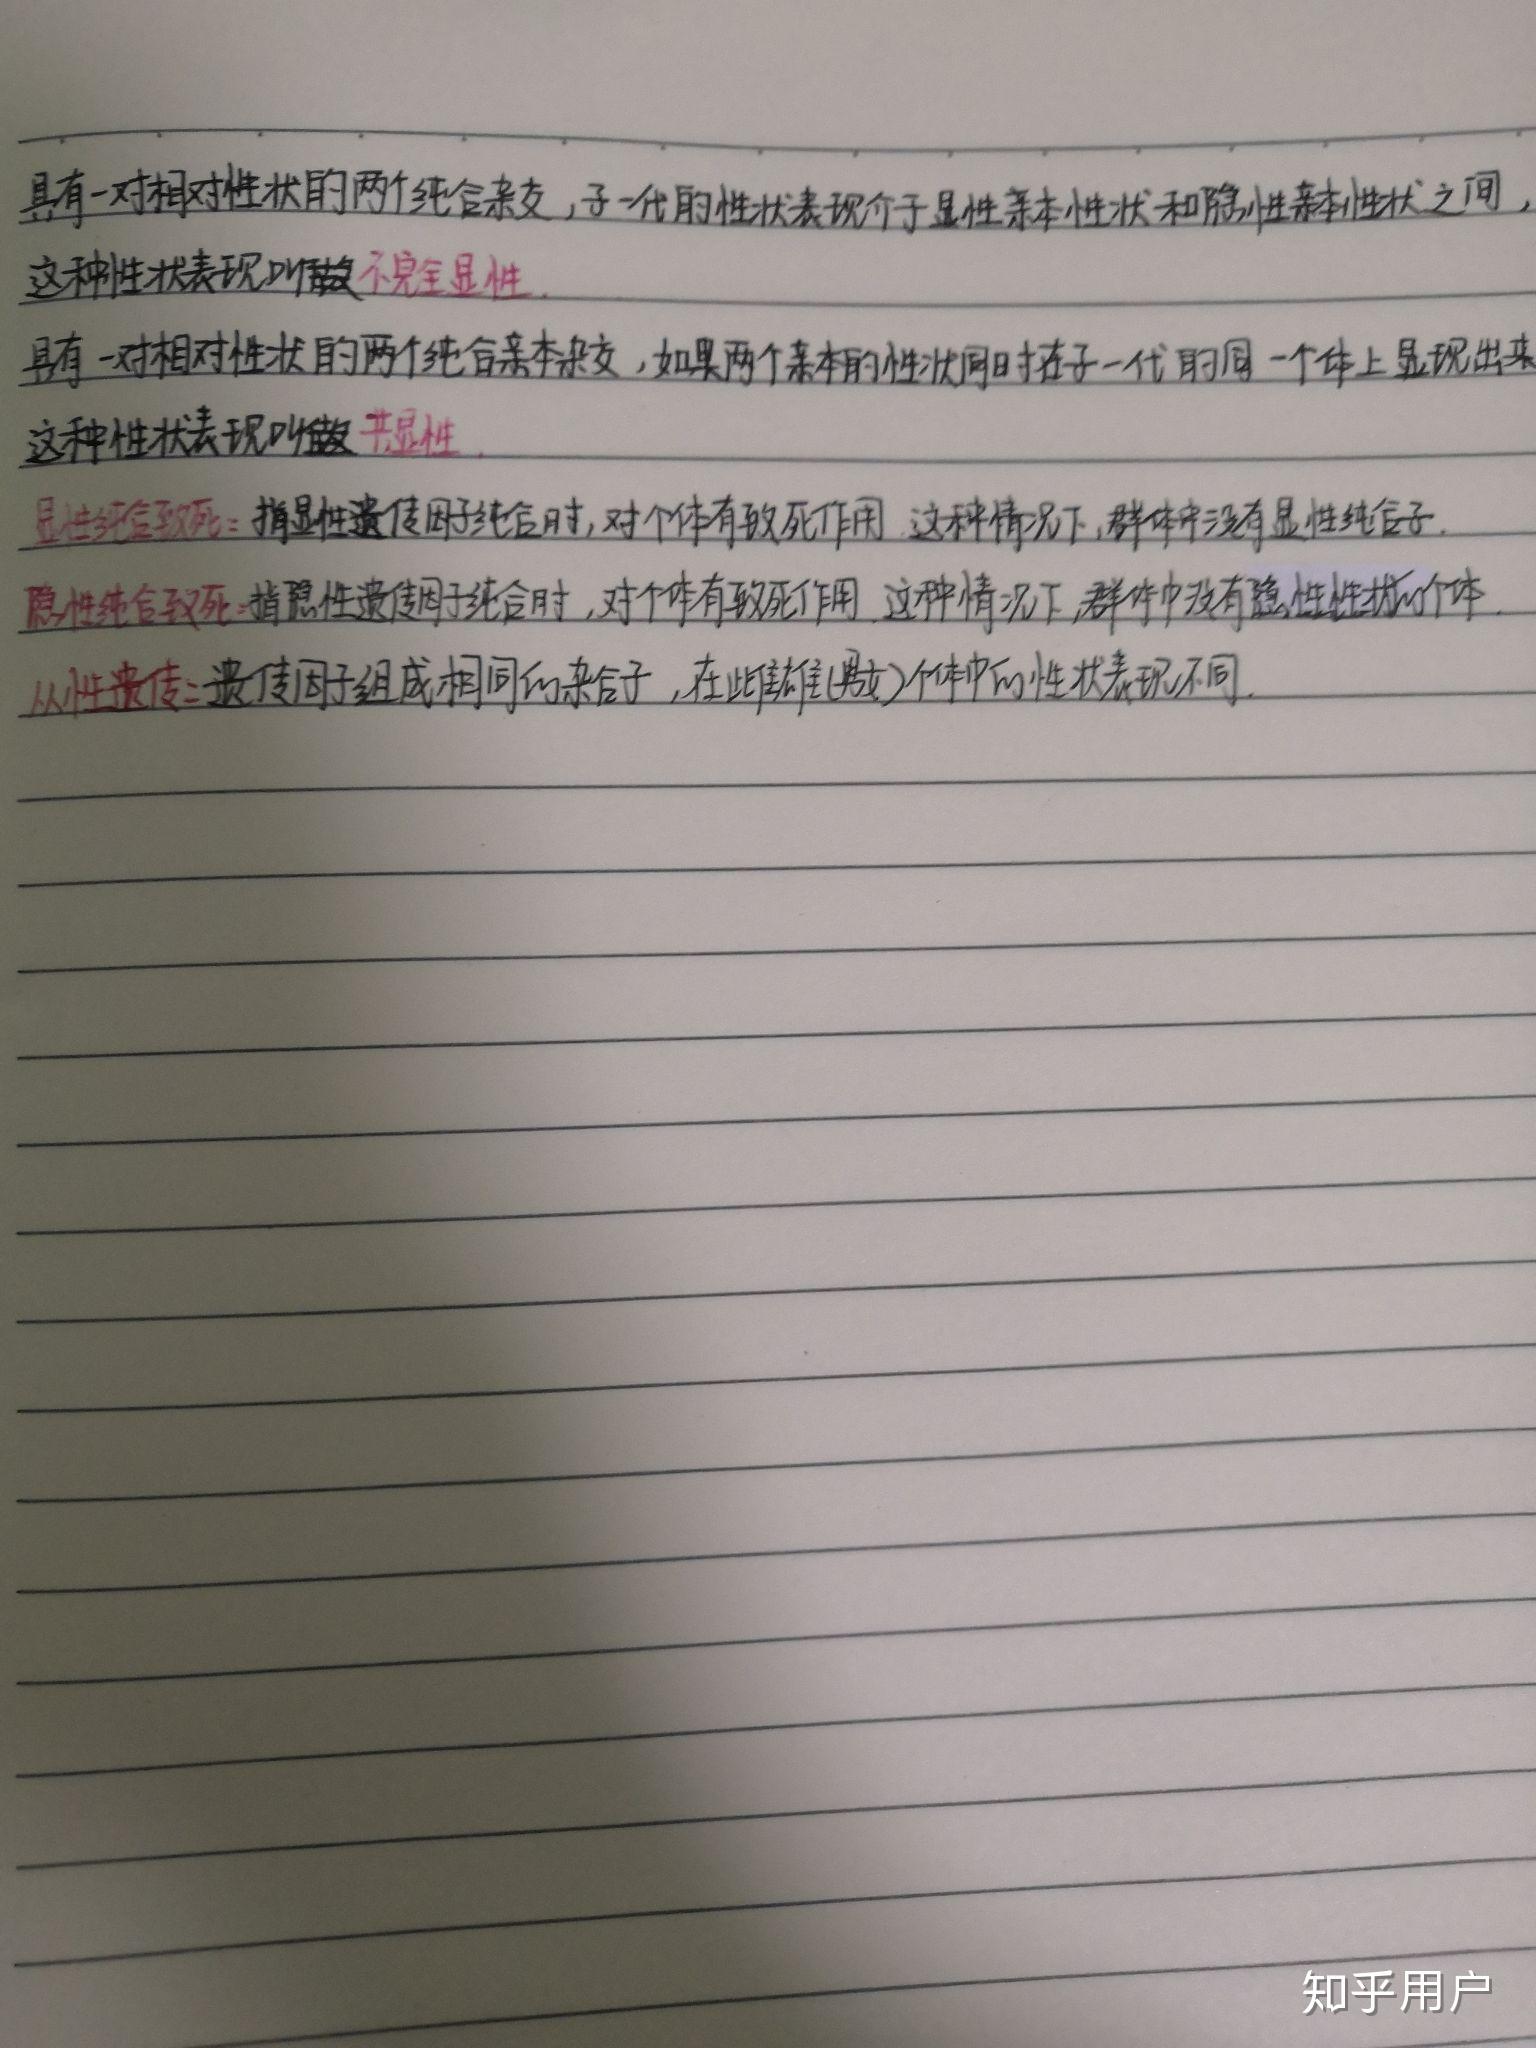 具有一对相对性状的两个纯合杂交，子一代的性状表现介于显性亲本性状和隐性亲本性状之间，
这种性状表现叫做不完全显性.
具有一对相对性状的两个纯合亲本杂交，如果两个亲本的性状同时在子一代的同一个体上显现出来
这种性状表现叫做共显性.
显性纯合致死：指显性遗传因子纯合时，对个体有致死作用.这种情况下，群体中没有显性纯合子.
隐性纯合致死：指隐性遗传因子纯合时，对个体有致死作用.这种情况下，群体中没有隐性性状的个体.
从性遗传：遗传因子组成相同的杂合子，在此雌雄(男女)个体中的性状表现不同.
知乎用户